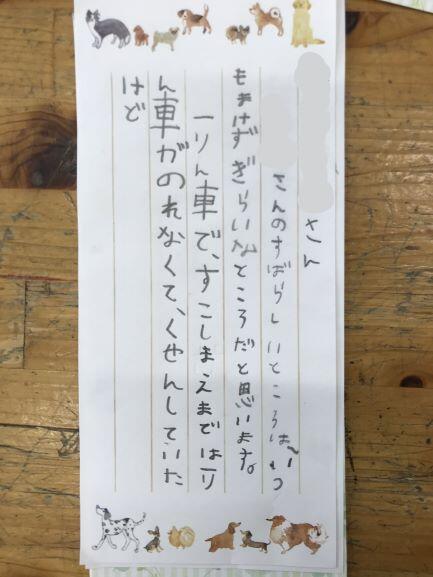 さん
さんのすばらしいところは、いつ
もまけずぎらいなところだと思います。
一りん車で、すこしまえまでは一り
ん車がのれなくて、くせんしていた
けど